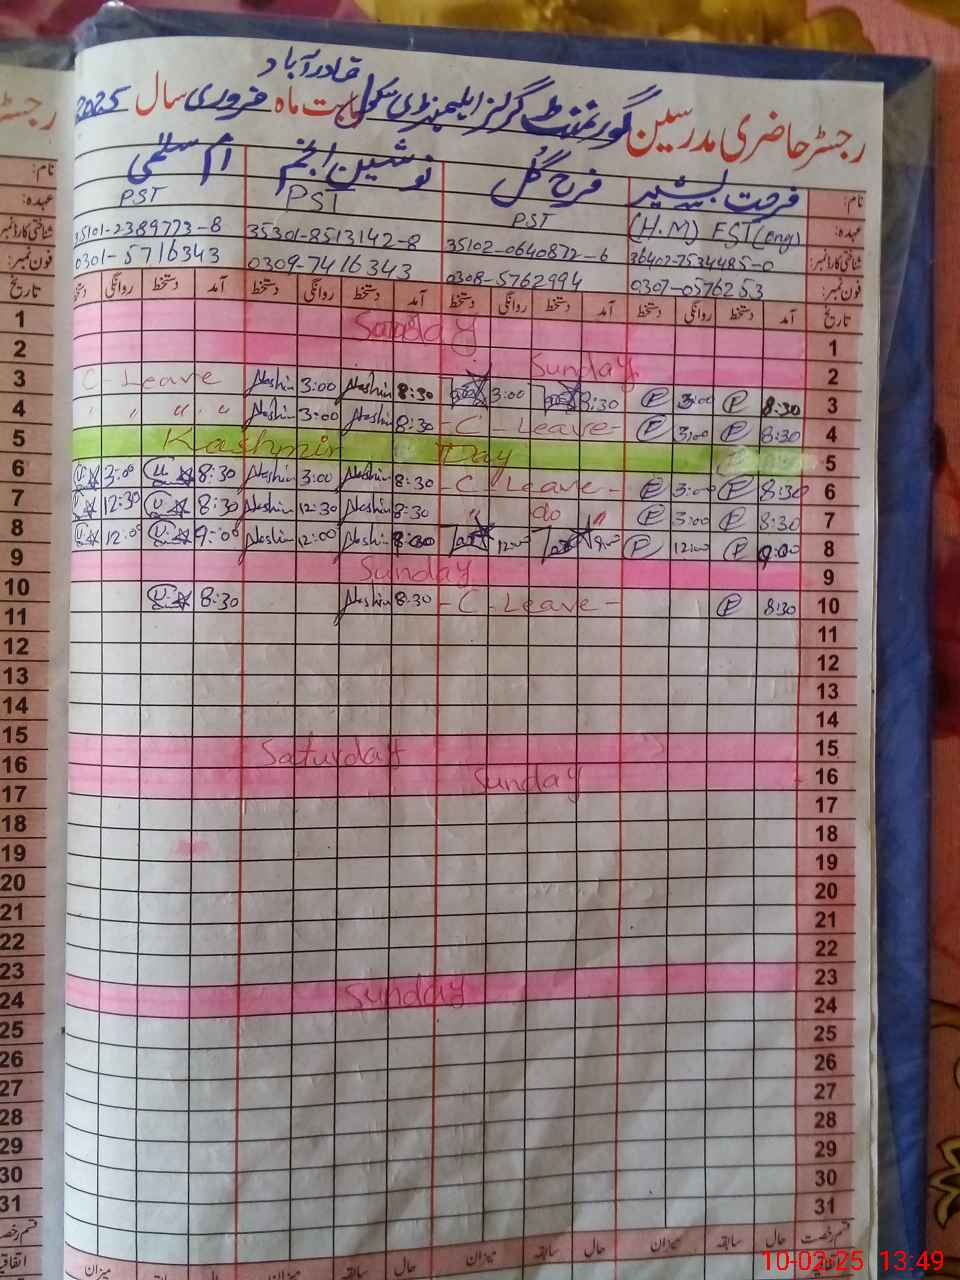 قادرآباد
رجسٹر حاضری مدرسین گورنمنٹ گرلز ایلیمنٹری سکول بابت ماہ فروری سال 2025
نام: فرحت بشیر فرح گل نوشین انجم ام سلمی
عہدہ: (H.M) EST(eng) PST PST PST
شناختی کارڈ نمبر: 36402-7534485-0 35102-0640872-6 35301-8513142-8 35101-2389773-8
فون نمبر: 0307-0576253 0308-5762994 0309-7416343 0301-5716343
تاریخ آمد دستخط روانگی دستخط آمد دستخط روانگی دستخط آمد دستخط روانگی دستخط آمد دستخط روانگی دستخط تاریخ
1 Sunday 1
2 Sunday 2
3 C-Leave Noshin 3:00 Noshin 8:30 3:00 8:30 P 3:00 P 8:30 3
4 " " " " Noshin 3:00 Noshin 8:30 -C-Leave- P 3:00 P 8:30 4
5 Kashmir Day 5
6 3:00 8:30 Noshin 3:00 Noshin 8:30 -C-Leave- P 3:00 P 8:30 6
7 12:30 8:30 Noshin 12:30 Noshin 8:30 " do " P 3:00 P 8:30 7
8 12:00 9:00 Noshin 12:00 Noshin 12:00 P 12:00 P 9:00 8
9 Sunday 9
10 8:30 Noshin 8:30 -C-Leave- P 8:30 10
11 11
12 12
13 13
14 14
15 Saturday 15
16 Sunday 16
17 17
18 18
19 19
20 20
21 21
22 22
23 Sunday 23
24 24
25 25
26 26
27 27
28 28
29 29
30 30
31 31
قسم رخصت حال سابقہ میزان حال سابقہ میزان حال سابقہ میزان
اتفاقیہ
10-02-25 13:49